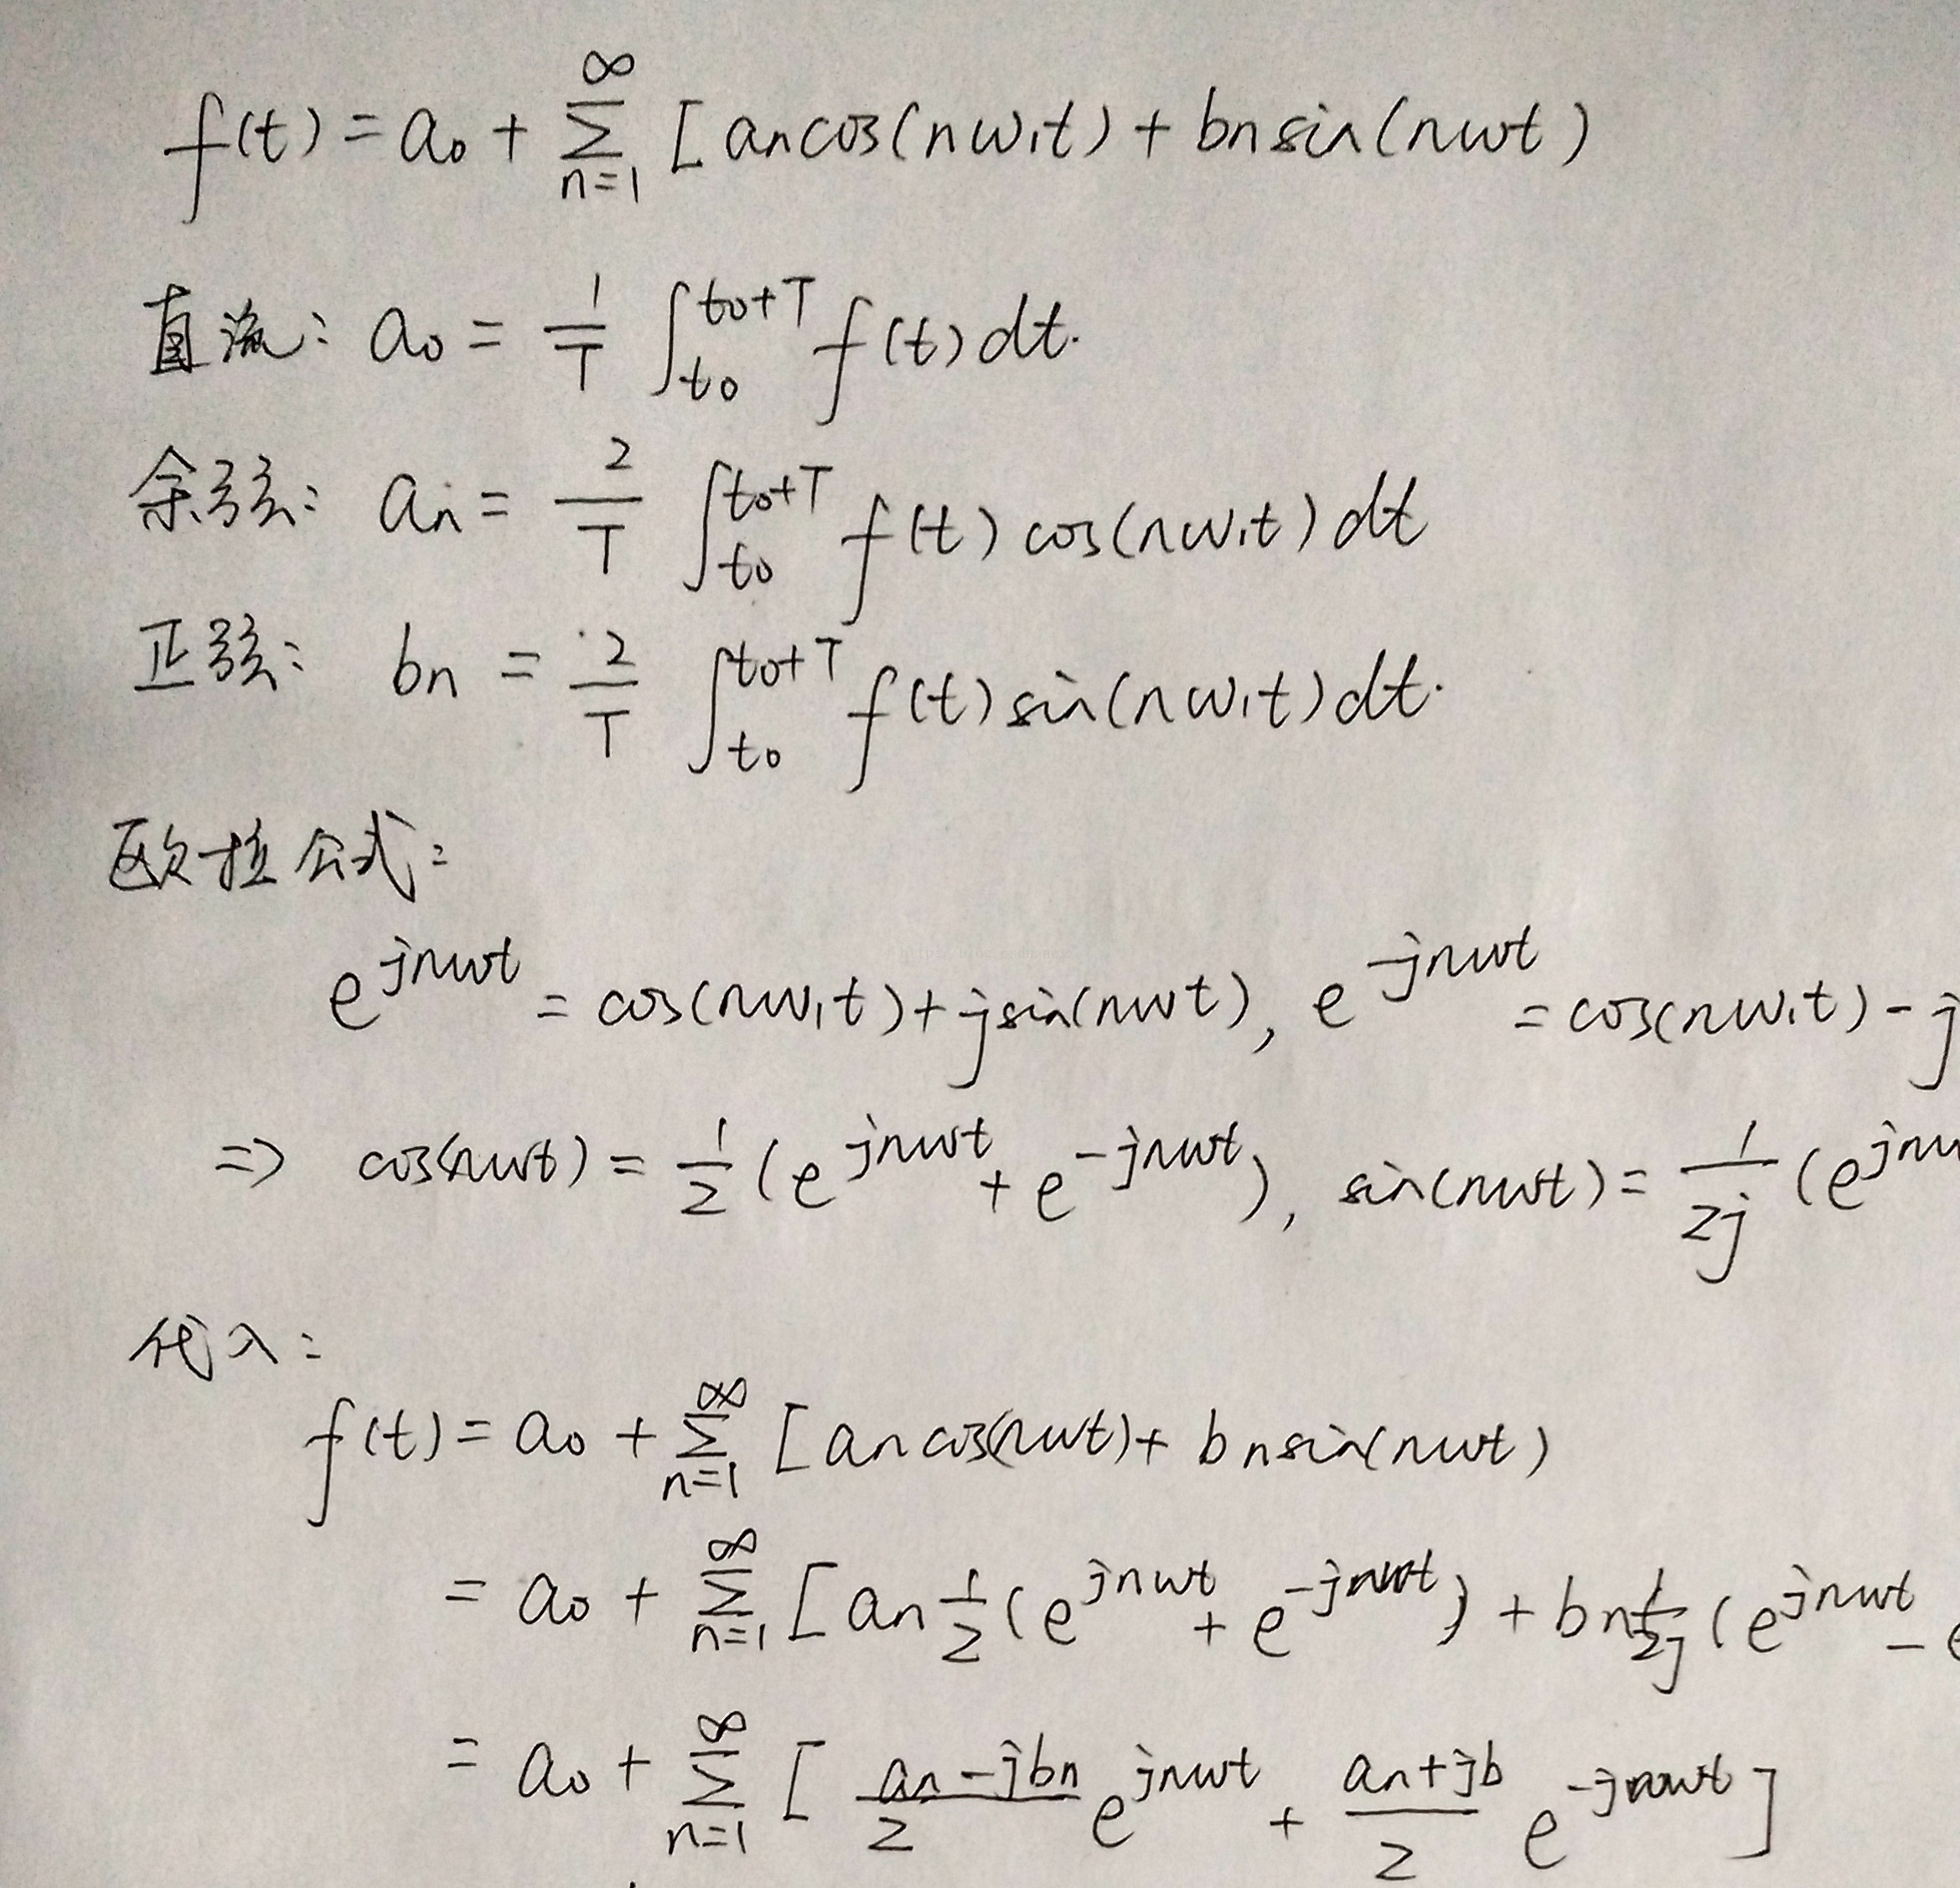 f(t) = a₀ + ∑_{n=1}^{∞} [ancos(nω₁t) + bnsin(nωt)
直流: a₀ = 1/T ∫_{t₀}^{t₀+T} f(t)dt.
余弦: an = 2/T ∫_{t₀}^{t₀+T} f(t) cos(nω₁t) dt
正弦: bn = 2/T ∫_{t₀}^{t₀+T} f(t) sin(nω₁t) dt.
欧拉公式:
e^{jnωt} = cos(nω₁t) + jsin(nωt), e^{-jnωt} = cos(nω₁t) - j
⇒ cos(nωt) = 1/2 (e^{jnωt} + e^{-jnωt}), sin(nωt) = 1/2j (e^{jnω
代入:
f(t) = a₀ + ∑_{n=1}^{∞} [an cos(nωt) + bnsin(nωt)
= a₀ + ∑_{n=1}^{∞} [an 1/2 (e^{jnωt} + e^{-jnωt}) + bn 1/2j (e^{jnωt} - e
= a₀ + ∑_{n=1}^{∞} [ (an-jbn)/2 e^{jnωt} + (an+jb)/2 e^{-jnωt} ]